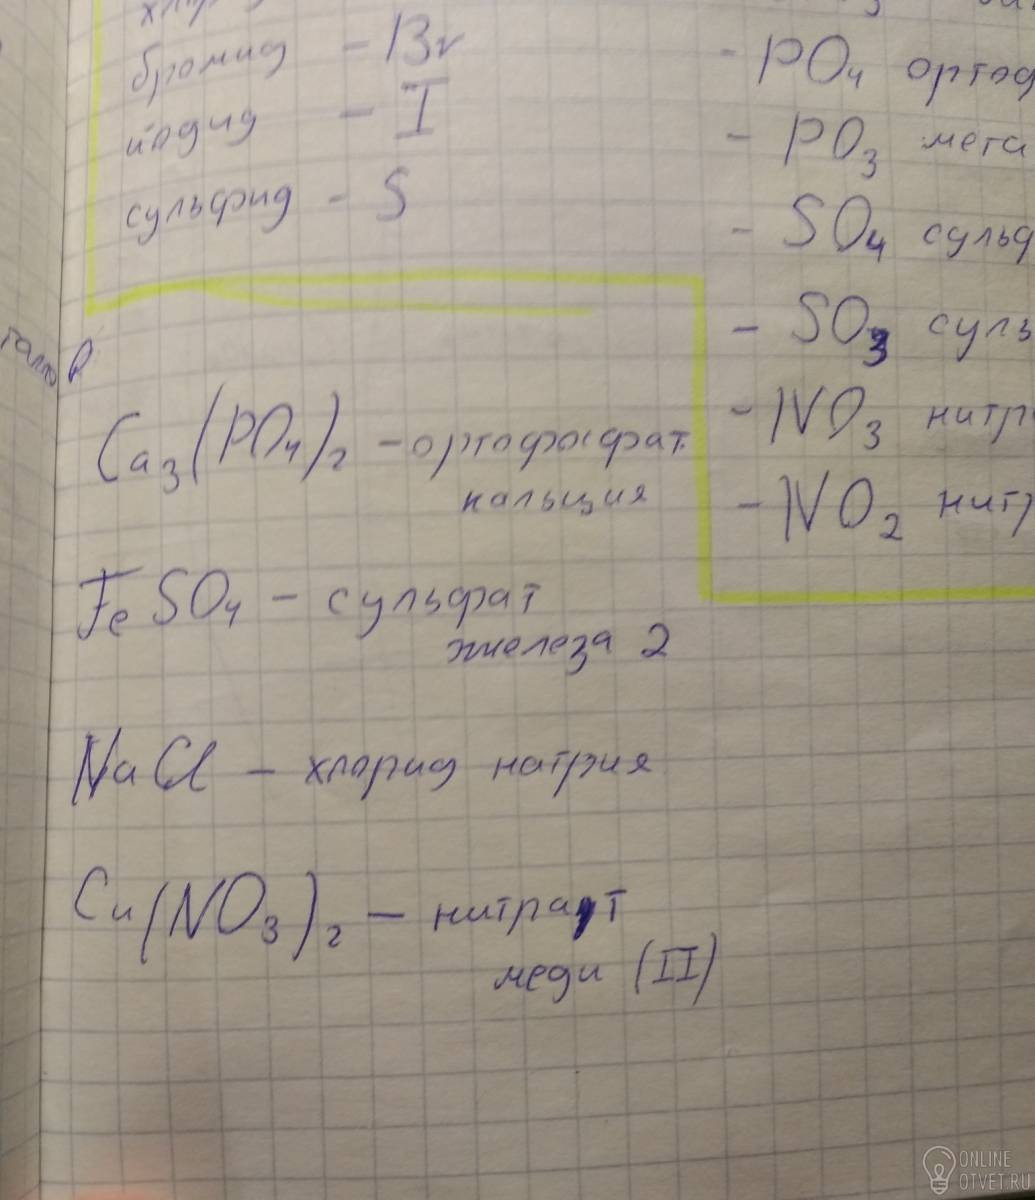 бромид - Br
йодид - I
сульфид - S
- PO₄ ортоф
- PO₃ мета
- SO₄ сульф
- SO₃ суль
- NO₃ нитр
- NO₂ нитр
Ca₃(PO₄)₂ - ортофосфат
кальция
FeSO₄ - сульфат
железа 2
NaCl - хлорид натрия
Cu(NO₃)₂ - нитрат
меди (II)
ONLINE
OTVET.RU